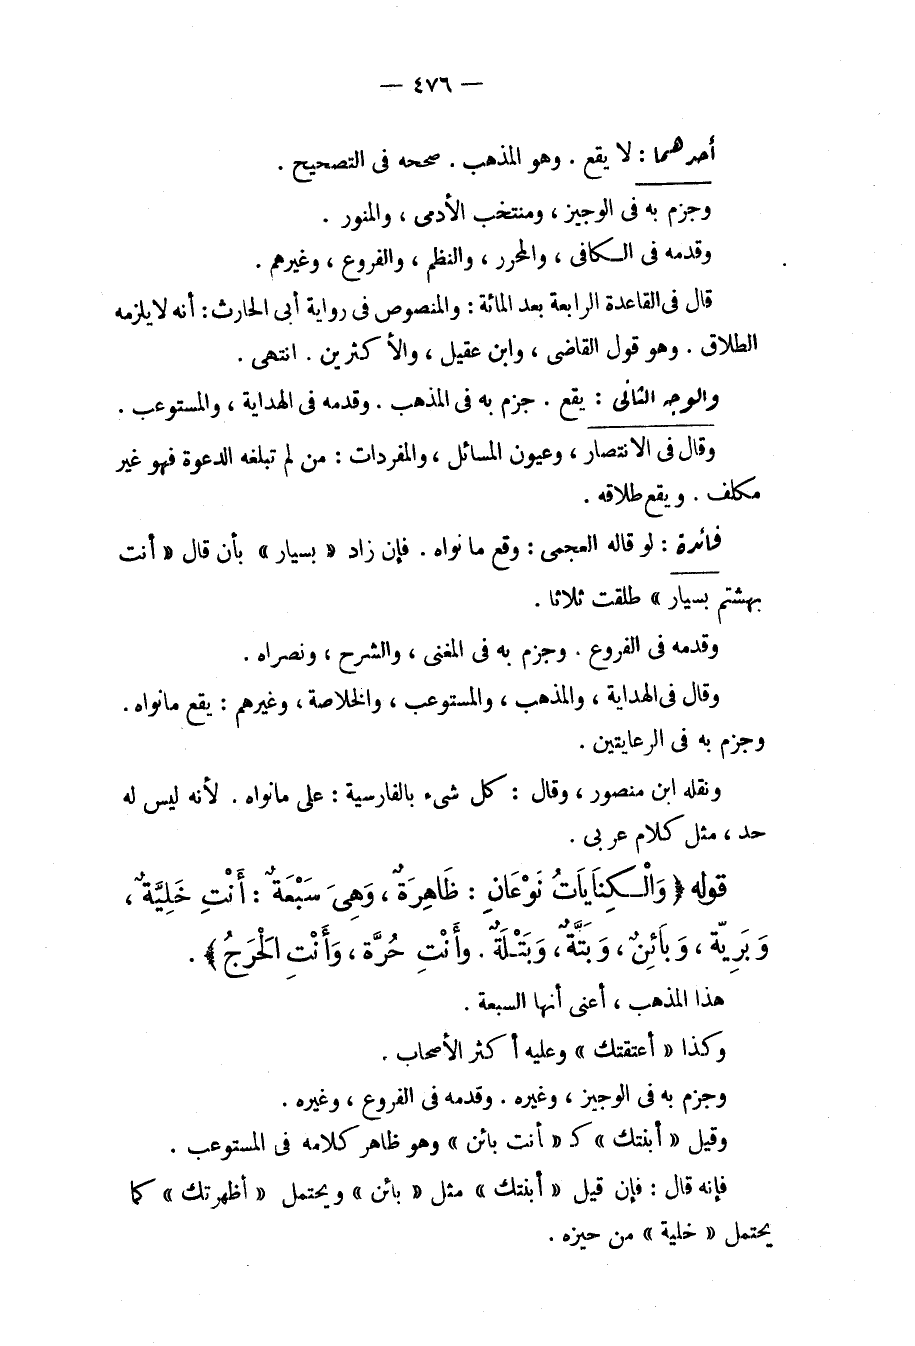 — ٤٧٦ —
أحدهما : لا يقع . وهو المذهب . صححه فى التصحيح .
وجزم به فى الوجيز ، ومنتخب الأدمى ، والمنور .
وقدمه فى الكافى ، والمحرر ، والنظم ، والفروع ، وغيرهم .
قال فى القاعدة الرابعة بعد المائة : والمنصوص فى رواية أبى الحارث : أنه لا يلزمه
الطلاق . وهو قول القاضى ، وابن عقيل ، والأكثرين . انتهى .
والوجه الثانى : يقع . جزم به فى المذهب . وقدمه فى الهداية ، والمستوعب .
وقال فى الانتصار ، وعيون المسائل ، والمفردات : من لم تبلغه الدعوة فهو غير
مكلف . ويقع طلاقه .
فائدة : لو قاله العجمى : وقع ما نواه . فإن زاد « بسيار » بأن قال « أنت
بهشتم بسيار » طلقت ثلاثا .
وقدمه فى الفروع . وجزم به فى المغنى ، والشرح ، ونصراه .
وقال فى الهداية ، والمذهب ، والمستوعب ، والخلاصة ، وغيرهم : يقع مانواه .
وجزم به فى الرعايتين .
ونقله ابن منصور ، وقال : كل شىء بالفارسية : على مانواه . لأنه ليس له
حد ، مثل كلام عربى .
قوله ﴿ وَالْكِنَايَاتُ نَوْعَانِ : ظَاهِرَةٌ ، وَهِىَ سَبْعَةٌ : أَنْتِ خَلِيَّةٌ ،
وَبَرِيّة ، وَبَائِنٌ ، وَبَتَّةٌ ، وَبَتْلَةٌ . وأَنْتِ حُرَّة ، وَأَنْتِ الْحَرَجُ ﴾ .
هذا المذهب ، أعنى أنها السبعة .
وكذا « أعتقتك » وعليه أكثر الأصحاب .
وجزم به فى الوجيز ، وغيره . وقدمه فى الفروع ، وغيره .
وقيل « أبنتك » كـ « أنت بائن » وهو ظاهر كلامه فى المستوعب .
فإنه قال : فإن قيل « أبنتك » مثل « بائن » ويحتمل « أظهرتك » كما
يحتمل « خلية » من حيزه .